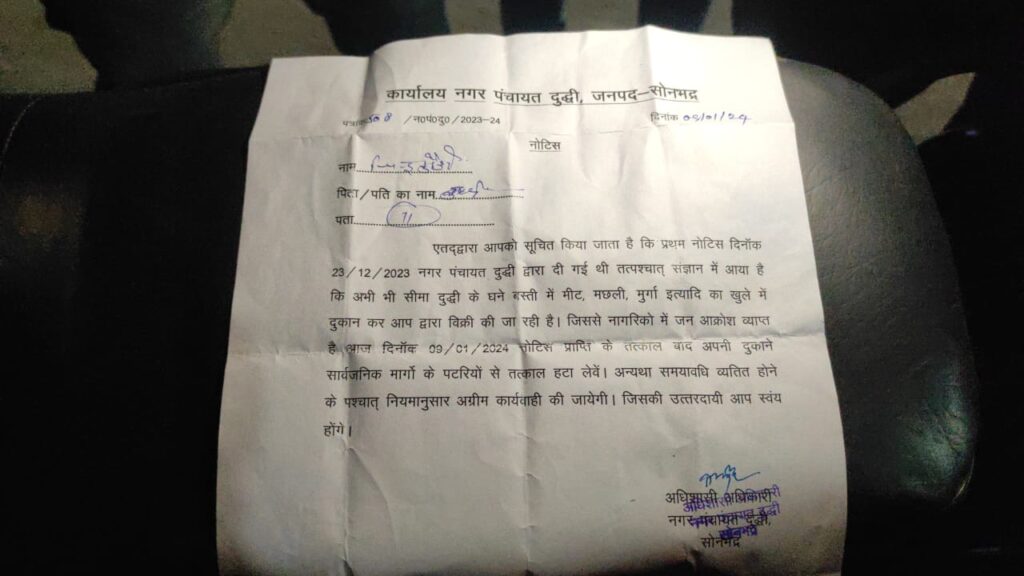 कार्यालय नगर पंचायत दुद्धी, जनपद-सोनभद्र
पत्रांक 508 /न०पं०दु०/2023-24 दिनांक 09/01/24
नोटिस
नाम
पिता/पति का नाम
पता 11
एतद्द्वारा आपको सूचित किया जाता है कि प्रथम नोटिस दिनॉक
23/12/2023 नगर पंचायत दुद्धी द्वारा दी गई थी तत्पश्चात् संज्ञान में आया है
कि अभी भी सीमा दुद्धी के घने बस्ती में मीट, मछली, मुर्गा इत्यादि का खुले में
दुकान कर आप द्वारा विक्री की जा रही है। जिससे नागरिको में जन आक्रोश व्याप्त
है आज दिनॉक 09/01/2024 नोटिस प्राप्ति के तत्काल बाद अपनी दुकाने
सार्वजनिक मार्गो के पटरियों से तत्काल हटा लेवें। अन्यथा समयावधि व्यतित होने
के पश्चात् नियमानुसार अग्रीम कार्यवाही की जायेगी। जिसकी उत्तरदायी आप स्वंय
होंगे।
अधिशासी अधिकारी
नगर पंचायत दुद्धी,
सोनभद्र
अधिशासी अधिकारी
नगर पंचायत दुद्धी
सोनभद्र